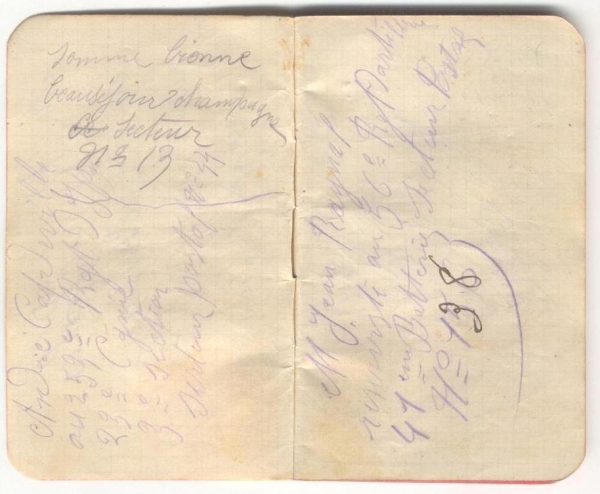 Somme bionne
beauséjour champagne
Secteur
N° 13
André
au 259e Regt
23e Cgnie
3e Section
Secteur postal N° 44
M Jean Raynal
réserviste au 56e Regt Dartillerie
41em Batterie Secteur Postal
N° 138